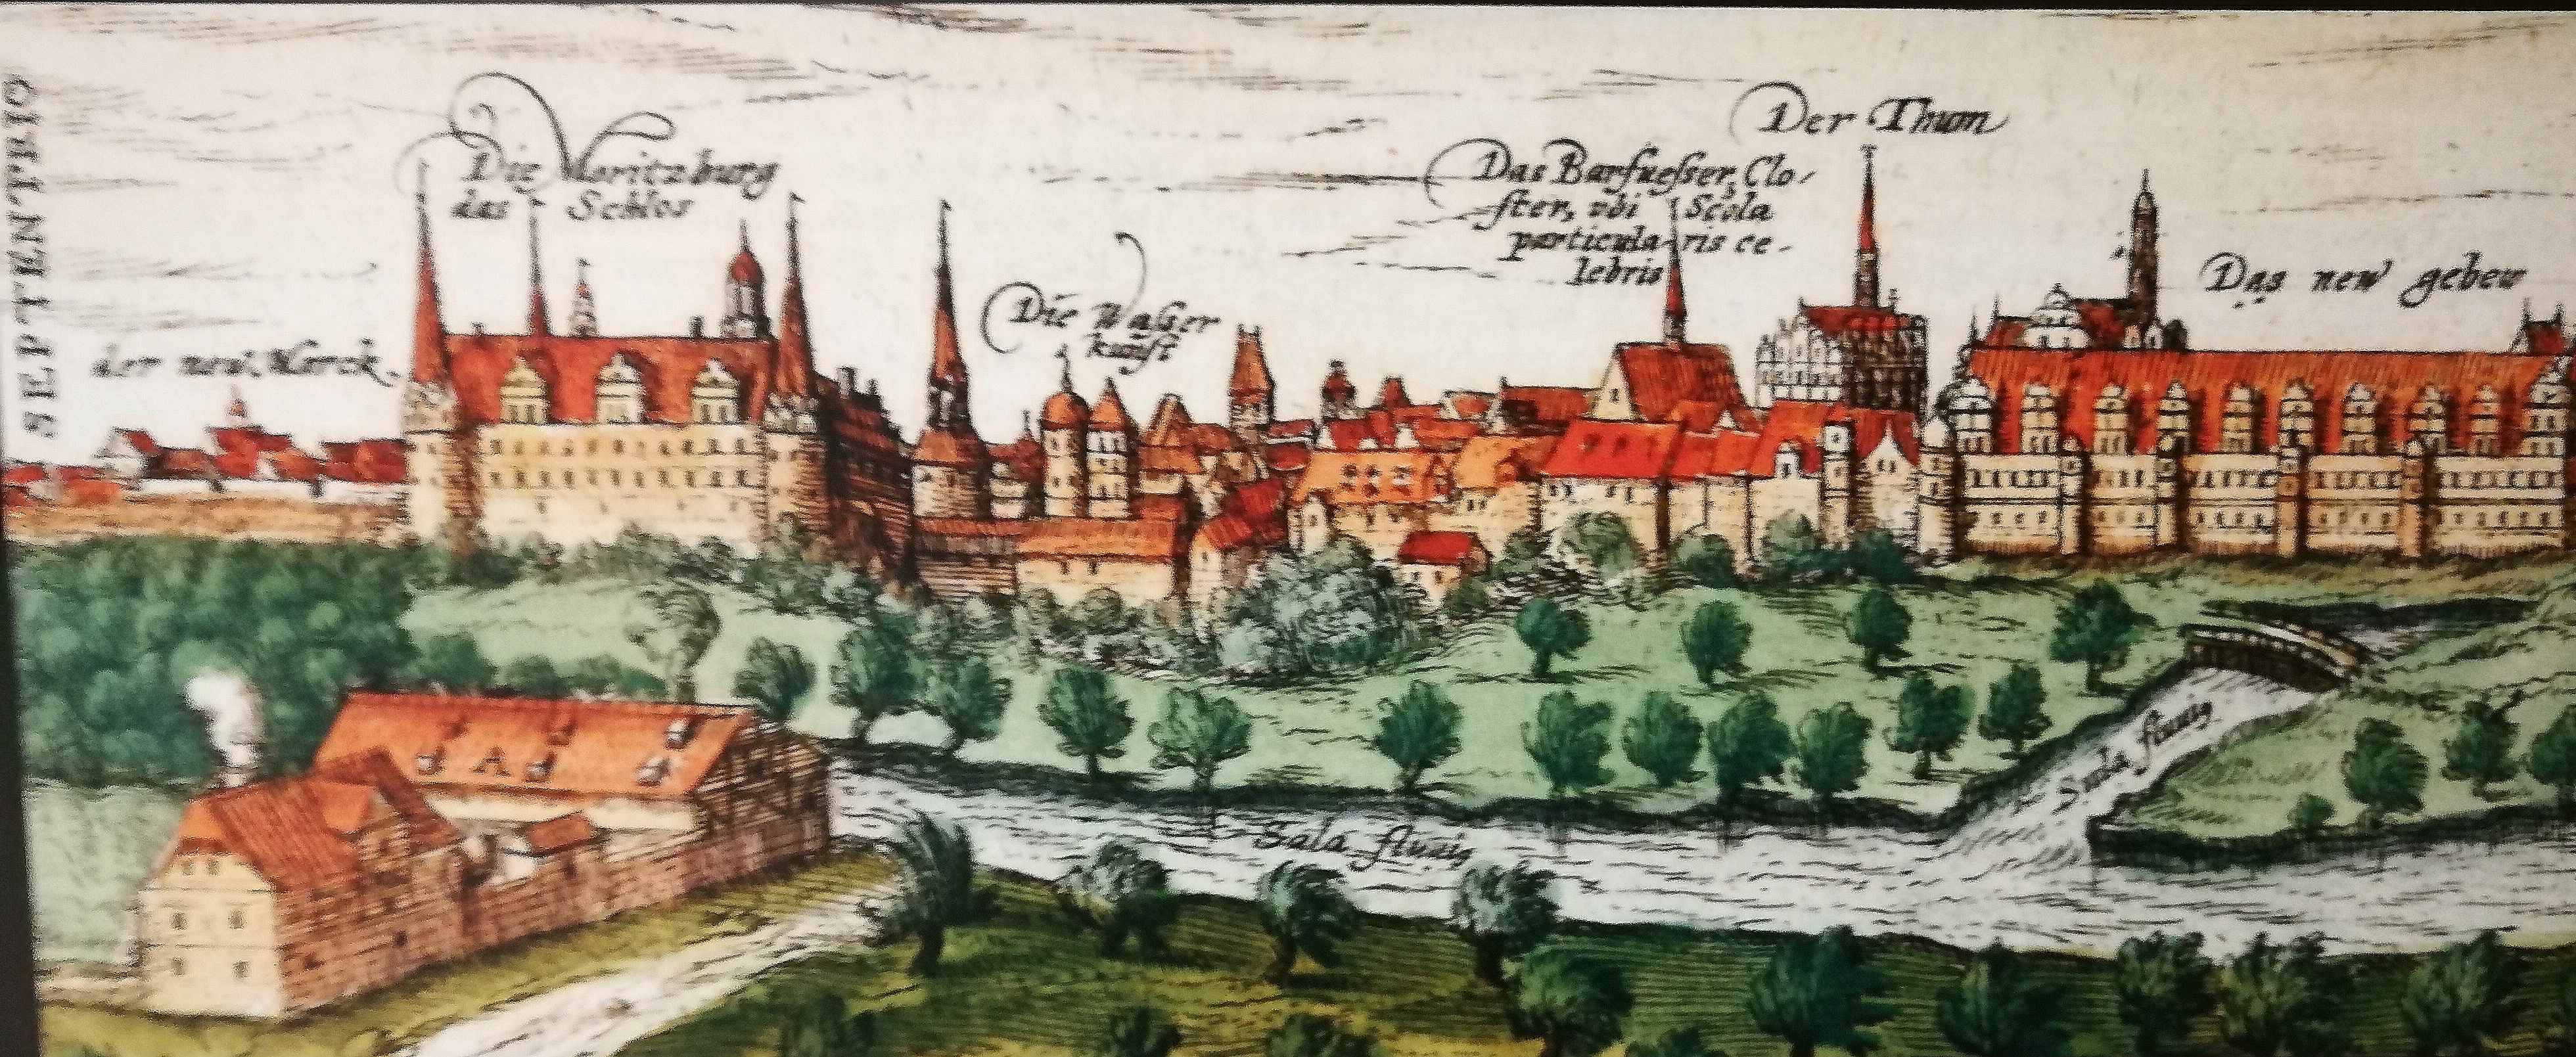 SEPTENTRIO
der new Marck.
Die Moritzburg
das Schlos
Die Wasser
kunst
Das Barfuesser Clo-
ster, vbi Scola
particularis ce-
lebris
Der Thum
Das new gebew
A
Sala fluvig
Sala fluvig